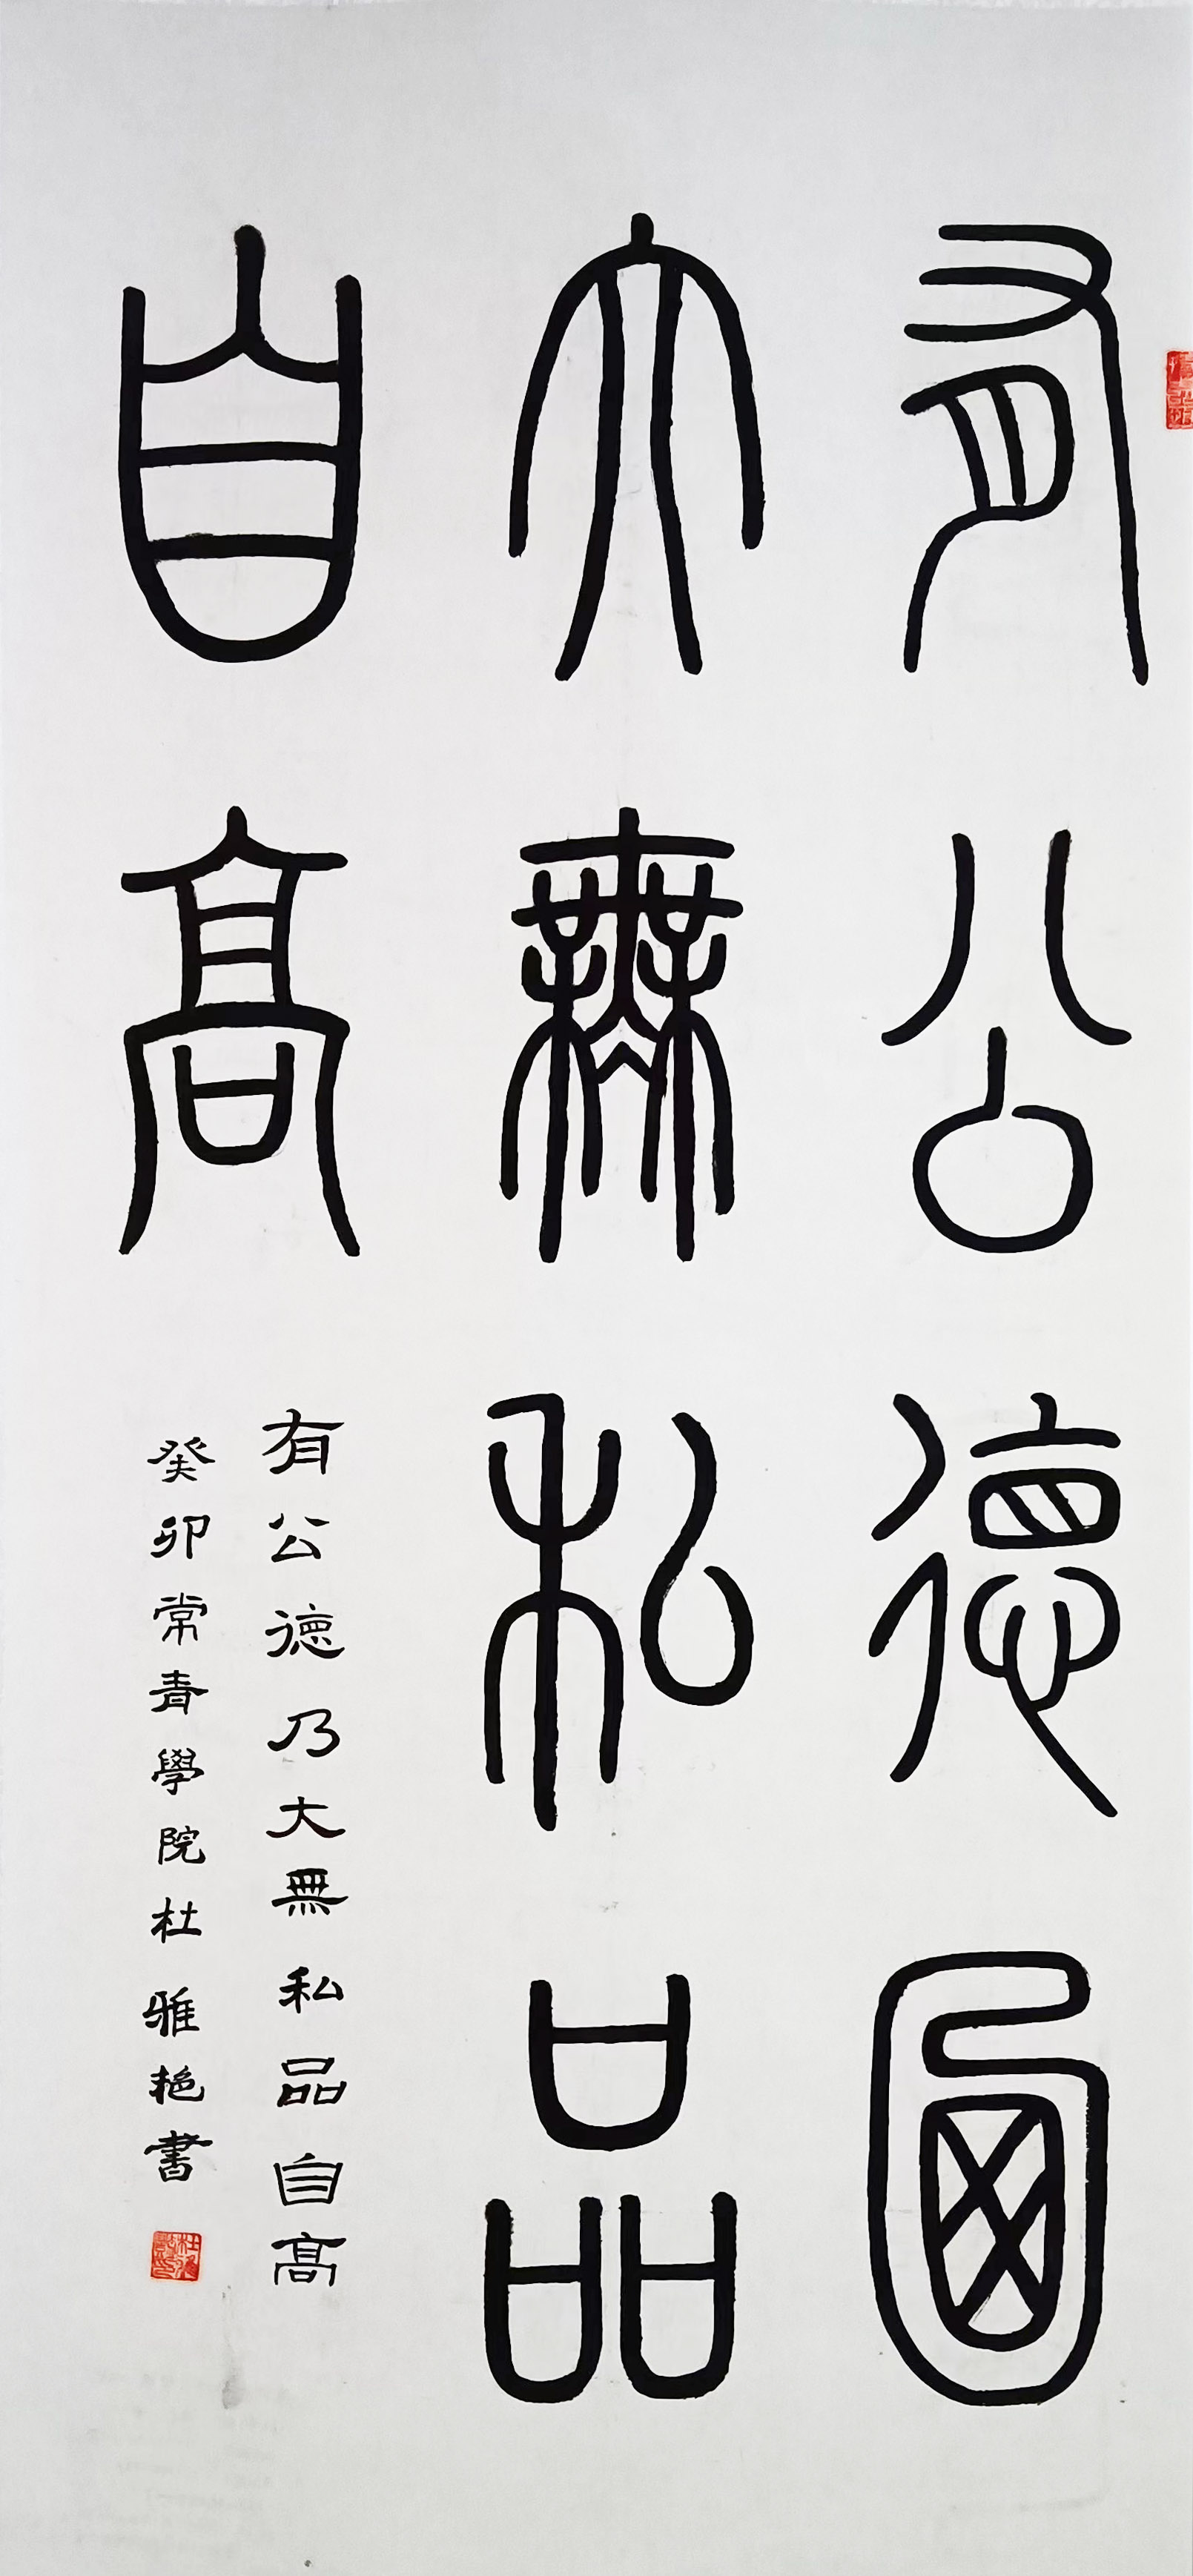 有公德𠧟
大無私品
自高
有公德乃大無私品自高
癸卯常青學院杜雅艳書